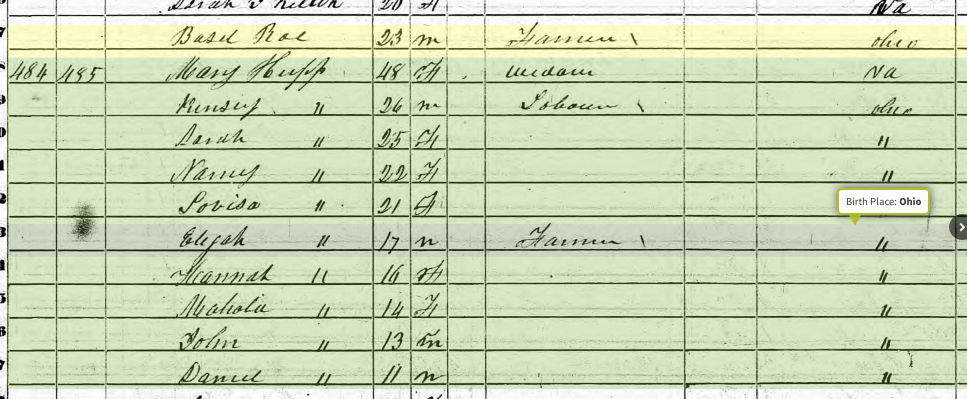 Sarah 20 F Va
Basel Roe 23 m Farmer \ ohio
484 485 Mary Hupp 48 F Va
Kinsey " 26 m \ ohio
Sarah " 25 F "
Nancy " 22 F "
Lovisa " 21 F
Birth Place: Ohio
Elijah " 17 m Farmer \ "
Hannah " 16 F "
Mahala " 14 F "
John " 13 m "
Daniel " 11 m "